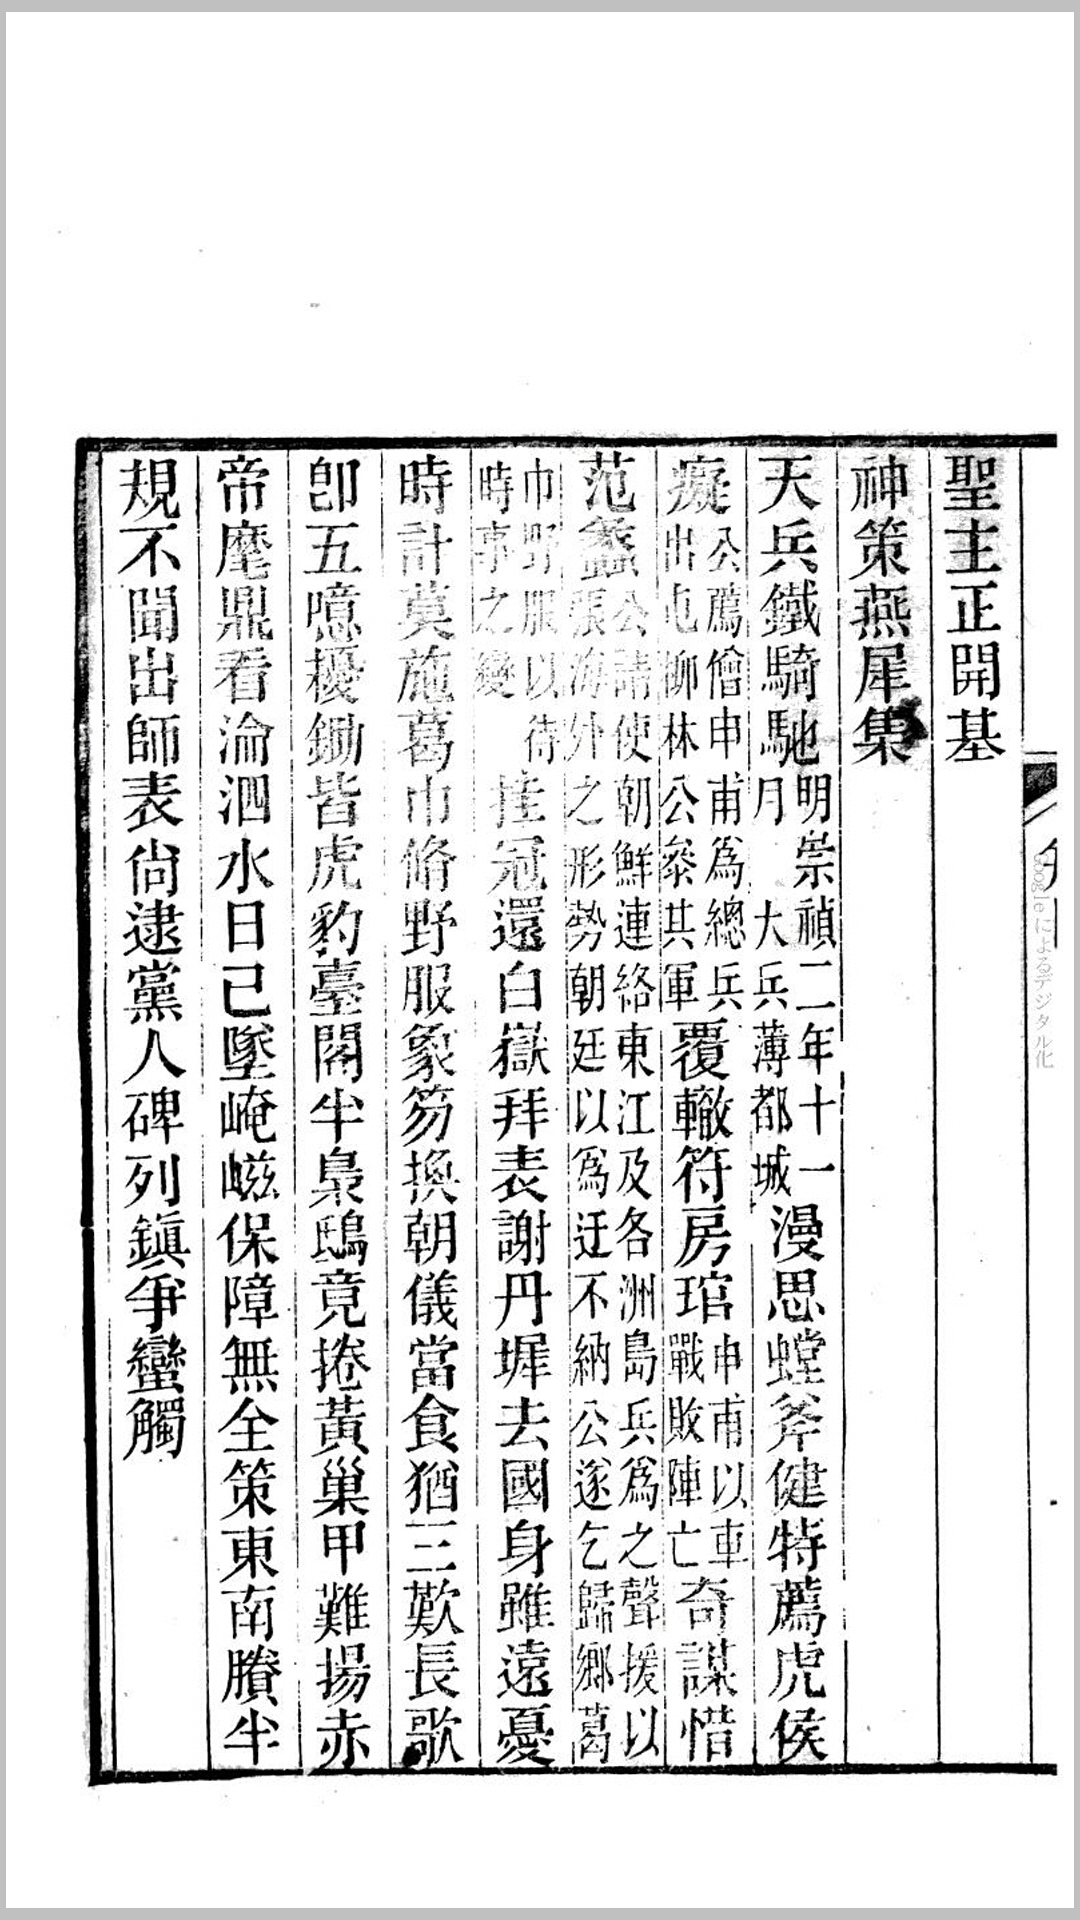 聖主正開基
神策燕犀集
天兵鐵騎馳明崇禎二年十一月 大兵薄都城漫思螳斧健特薦虎侯
癡公薦僧申甫爲總兵出屯柳林公叅其軍覆轍符房琯申甫以車戰敗陣亡奇謀惜
范蠡公請使朝鮮連絡東江及各洲島兵爲之聲援以張海外之形勢朝廷以爲迂不納公遂乞歸鄉葛
巾野服以待時事之變挂冠還白嶽拜表謝丹墀去國身雖遠憂
時計莫施葛巾脩野服象笏換朝儀當食猶三歎長歌
卽五噫擾鋤皆虎豹臺閣半梟鴟竟捲黃巢甲難揚赤
帝麾鼎看淪泗水日已墜崦嵫保障無全策東南賸半
規不聞出師表尙逮黨人碑列鎭爭蠻觸
Googleによるデジタル化